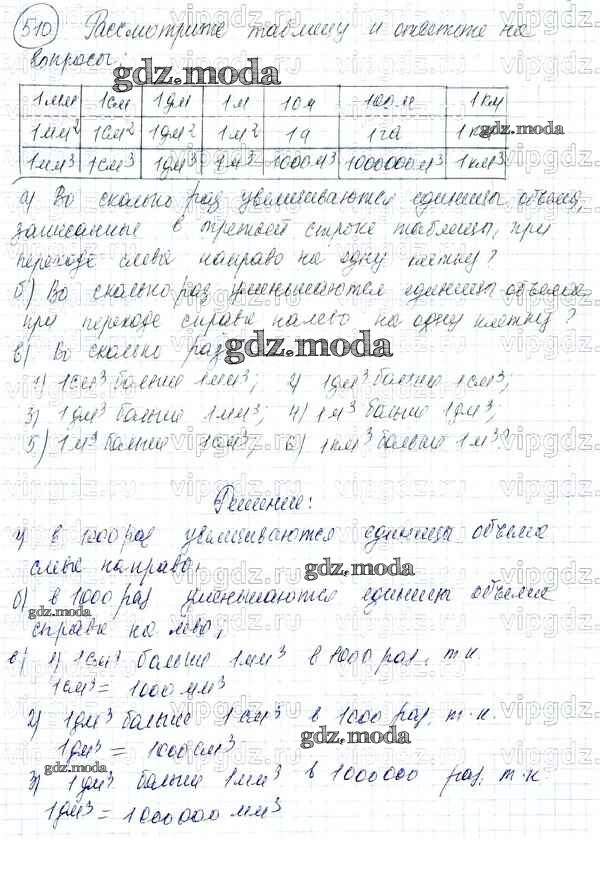 510 Рассмотрите таблицу и ответьте на
вопросы:
gdz.moda
1мм 1см 1дм 1м 10м 100м 1км
1мм² 1см² 1дм² 1м² 1а 1га 1
gdz.moda
1мм³ 1см³ 1дм³ 1м³ 1000м³ 1000000м³ 1км³
а) Во сколько раз увеличиваются единицы объема,
записанные в третьей строке таблицы, при
переходе слева направо на одну клетку?
б) Во сколько раз уменьшаются единицы объема
при переходе справа налево на одну клетку?
в) Во сколько раз
gdz.moda
1) 1см³ больше 1мм³; 2) 1дм³ больше 1см³;
3) 1дм³ больше 1мм³; 4) 1м³ больше 1дм³;
5) 1м³ больше 1см³; 6) 1км³ больше 1м³?
Решение:
а) в 1000 раз увеличиваются единицы объема
слева направо,
gdz.moda
б) в 1000 раз уменьшаются единицы объема
gdz.moda
справа на лево,
в) 1) 1см³ больше 1мм³ в 1000 раз, т.к.
1см³ = 1000мм³
2) 1дм³ больше 1см³ в 1000 раз, т.к.
1дм³ = 1000см³
gdz.moda
3) 1дм³ больше 1мм³ в 1000000 раз, т.к.
gdz.moda
1дм³ = 1000000мм³